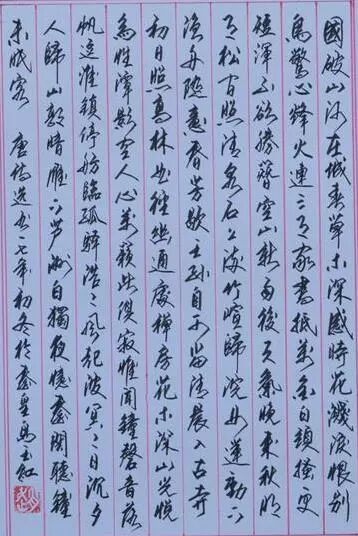 國破山河在城春草木深感時花濺淚恨別
鳥驚心烽火連三月家書抵萬金白頭搔更
短渾不欲勝簪空山新雨後天氣晚來秋明
月松間照清泉石上流竹喧歸浣女蓮動下
漁舟隨意春芳歇王孫自可留清晨入古寺
初日照高林曲徑幽通處禪房花木深山光悅
鳥性潭影空人心萬籟此俱寂惟聞鐘磬音落
帆逗淮鎮停舫臨孤驛浩〻風起波冥〻日沉夕
人歸山郭暗雁下芦洲白獨夜憶秦關聽鐘
未眠客 唐詩選 一七年初冬於秦皇馬玉紅